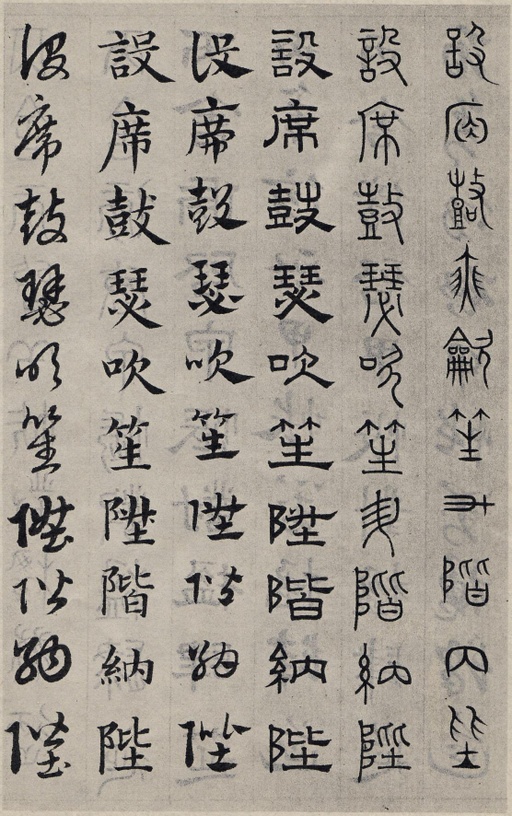 設席鼓瑟吹笙升階納陛
設席鼓瑟吹笙升階納陛
設席鼓瑟吹笙陞階納陛
設席鼓瑟吹笙陞階納陛
設席鼓瑟吹笙陞階納陛
設席鼓瑟吹笙陞階納陛